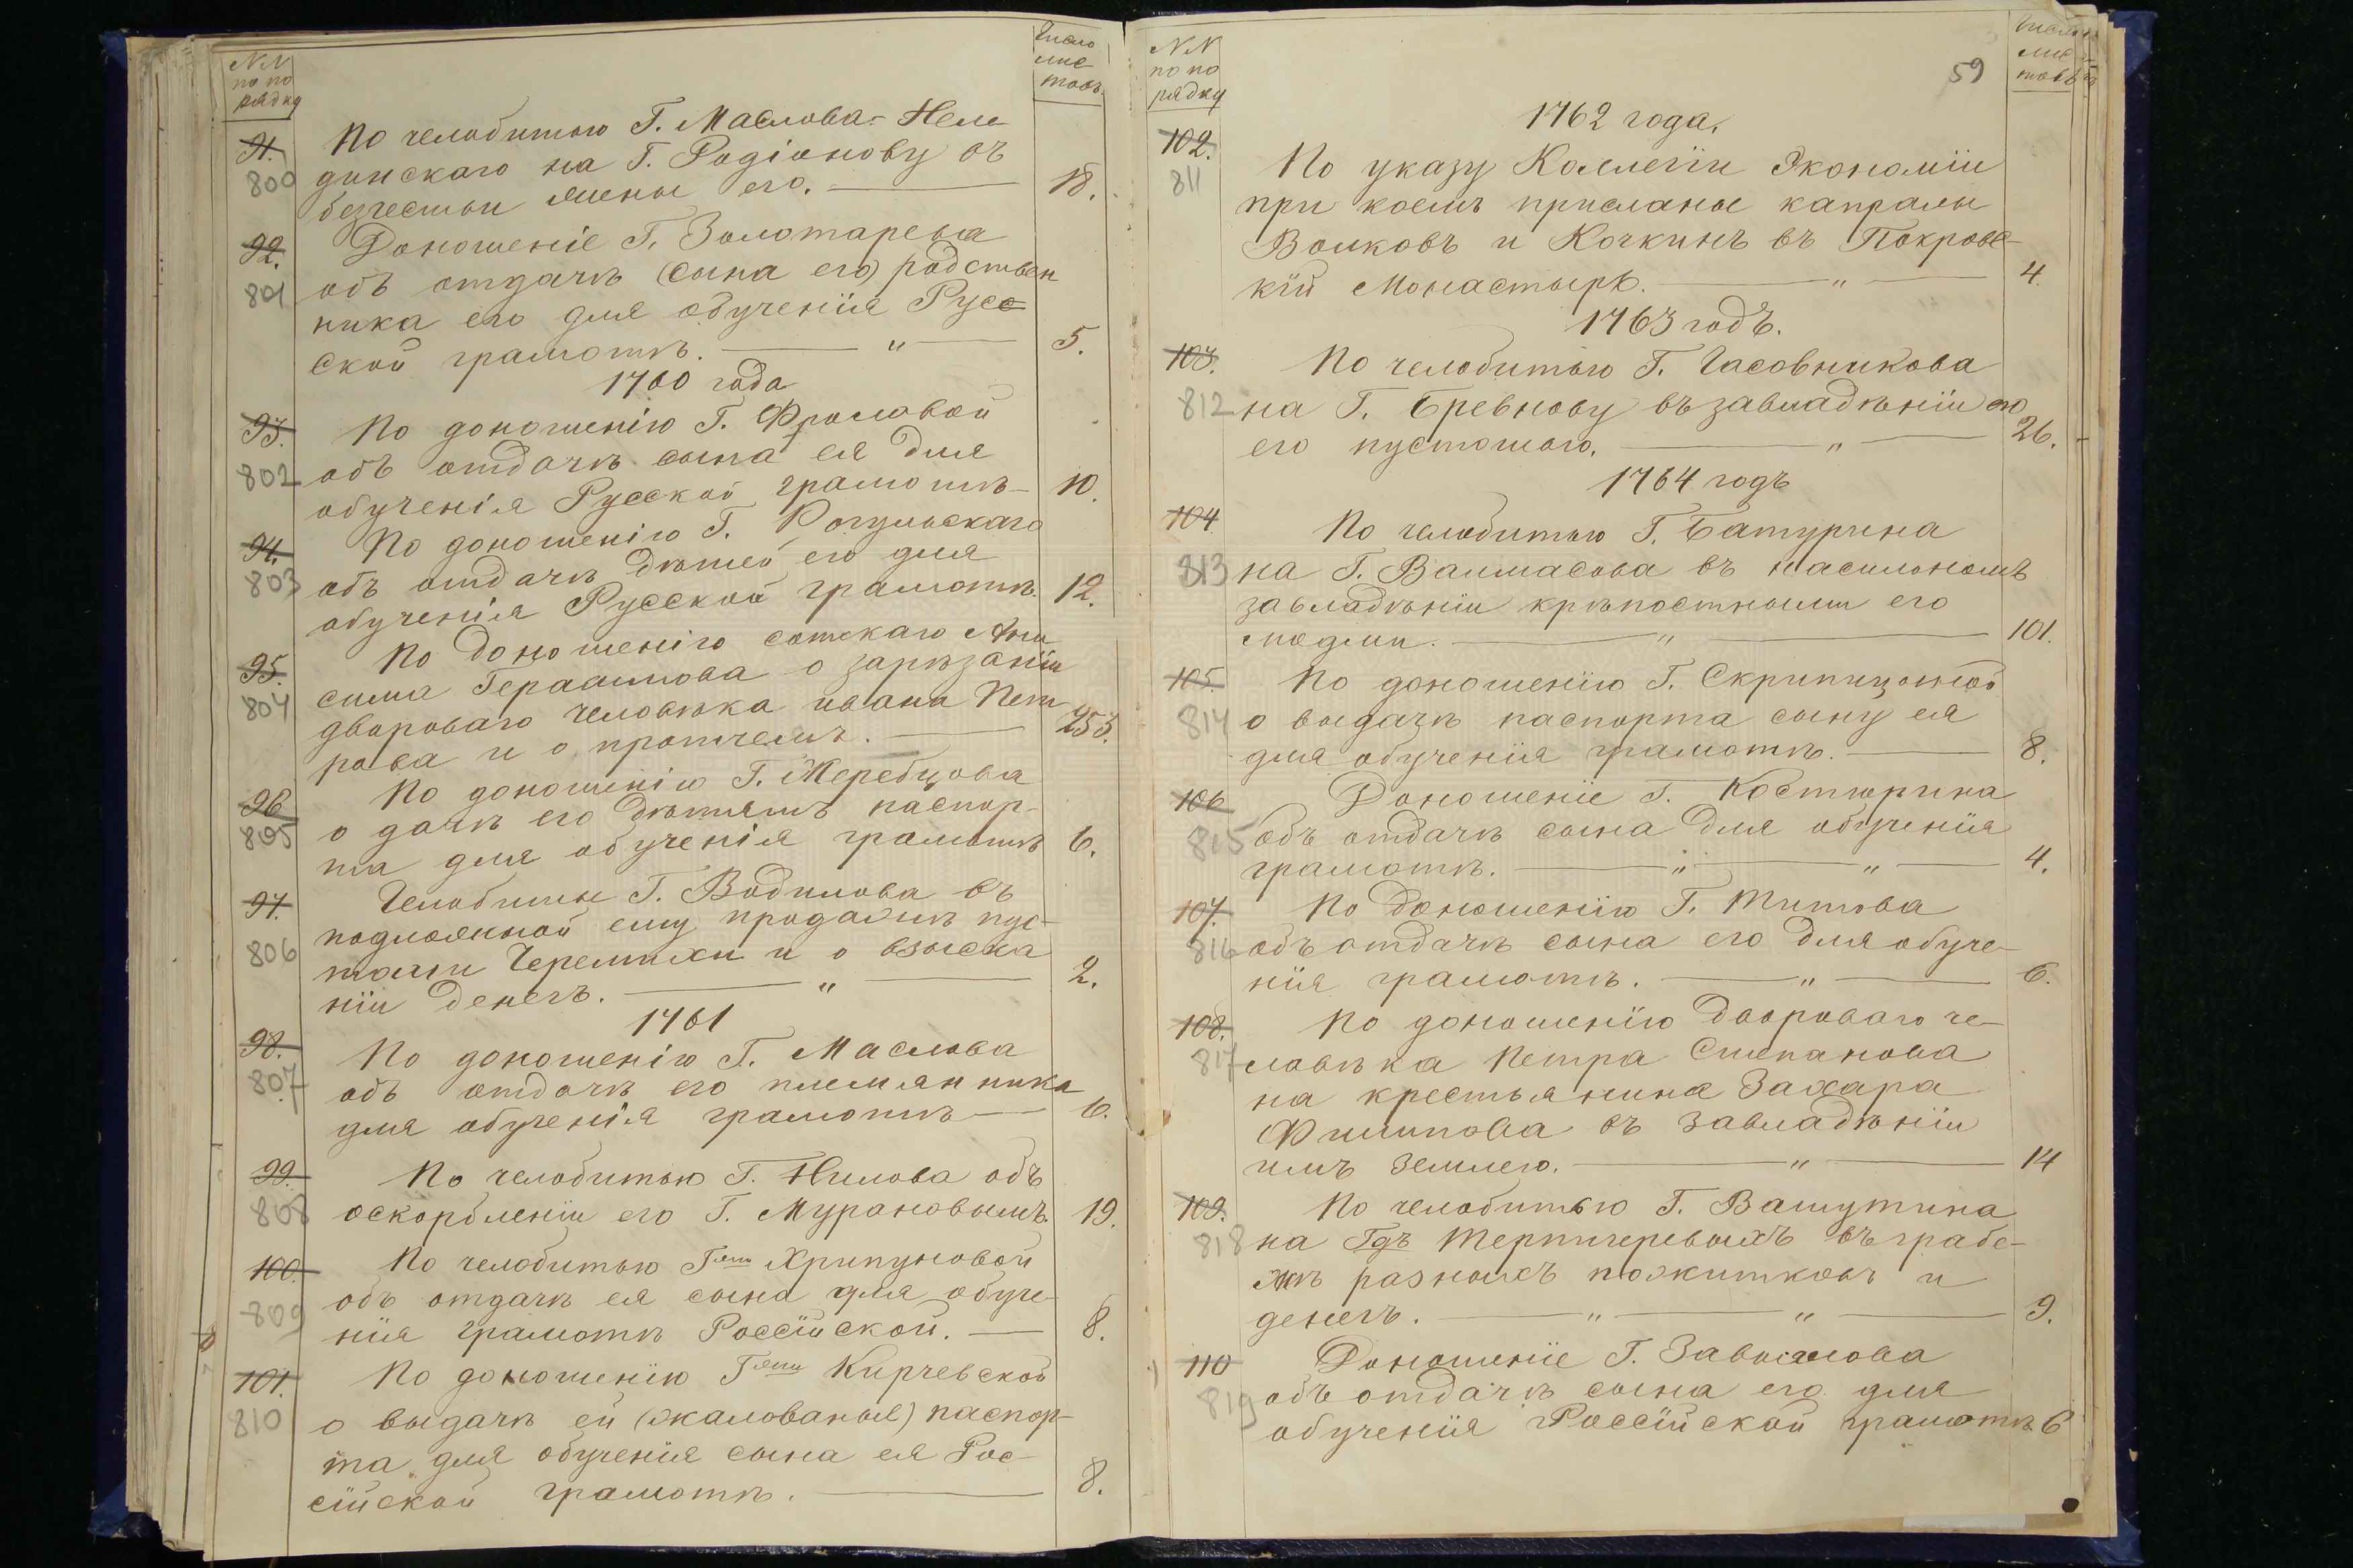 NN
по по
рядку
Число
лис
товъ.
91.
800
По челобитью Г. Маслова-Неле
динскаго на Г. Родіонову въ
безчестьи жены его. 18.
92.
801
Доношеніе Г. Золотарева
объ отдачѣ (сына его) родствен
ника его для обученія Русс
ской грамотѣ. " 5.
1760 года
93.
802
По доношенію Г. Фроловой
объ отдачѣ сына ея для
обученія Русской грамотѣ 10.
94.
803
По доношенію Г. Рогульскаго
объ отдачѣ дѣтей его для
обученія Русской грамотѣ. 12.
95.
804
По доношенію сотскаго
сима Герасимова о зарѣзаніи
двороваго человѣка ивана Пет
рова и о протчемъ. 253.
96
805
По доношенію Г. Жеребцова
о дачѣ его дѣтямъ паспор-
та для обученія грамотѣ 6.
97.
806
Челобитье Г. Водилова въ
подложной ему продажѣ пус-
тоши Черемихи и о взыска
ніи денегъ. " 2.
1761
98.
807
По доношенію Г. Маслова
объ отдачѣ его племянника
для обученія грамотѣ 6.
99.
808
По челобитью Г. Нилова объ
оскорбленіи его Г. Мурановымъ. 19.
100.
809
По челобитью Гжи Хрипуновой
объ отдачѣ ея сына для обуче-
нія грамотѣ Россійской. 8.
101.
810
По доношенію Гжи Кирчевской
о выдачѣ ей (жалованые) паспор-
та для обученія сына ея Рос-
сійской грамотѣ. 8.
NN
по по
рядку
59
Число
лис
товъ
1762 года.
102.
811
По указу Коллегіи Экономіи
при коемъ присланые капралы
Волковъ и Кочкинъ въ Покровс-
кій Монастырь. " 4.
1763 годъ.
103.
812
По челобитью Г. Часовникова
на Г. Бревнову въ завладѣніи ею
его пустошью. " 26.
1764 годъ
104
813
По челобитью Г. Батурина
на Г. Валмасова въ насильномъ
завладѣніи крѣпостными его
людми. " 101.
105.
814
По доношенію Г.
о выдачѣ паспорта сыну ея
для обученія грамотѣ. 8.
106
815
Доношеніе Г. Костюрина
объ отдачѣ сына для обученія
грамотѣ. " " 4.
107.
816
По доношенію Г. Титова
объ отдачѣ сына его для обуче-
нія грамотѣ. " 6.
108.
817
По доношенію двороваго че-
ловѣка Петра Степанова
на крестьянина Захара
Филипова въ завладѣніи
имъ землею. " 14
109.
818
По челобитью Г. Вашутина
на Гдъ Терпигеревыхъ въ грабе-
жѣ разныхъ пожитковъ и
денегъ. " " 9.
110
819
Доношеніе Г. Завалова
объ отдачѣ сына его для
обученія Россійской грамотѣ 6